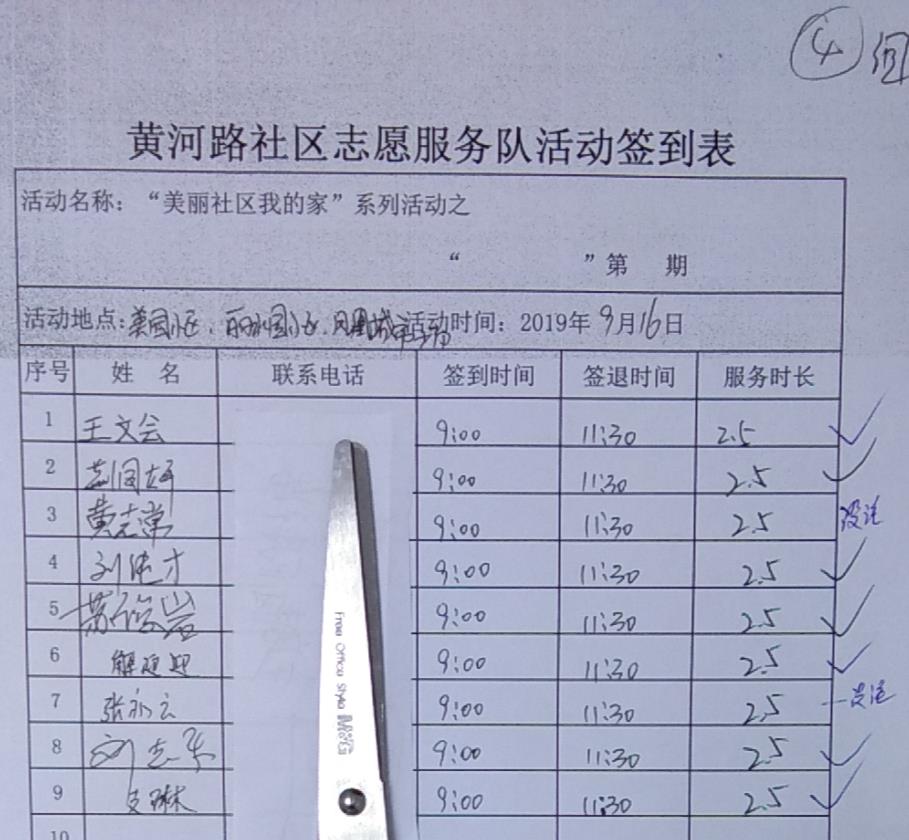 ④组
黄河路社区志愿服务队活动签到表
活动名称：“美丽社区我的家”系列活动之
“ ”第 期
活动地点: 活动时间：2019年9月16日
序号 姓 名 联系电话 签到时间 签退时间 服务时长
1 王文会 9:00 11:30 2.5
2 9:00 11:30 2.5
3 黄志常 9:00 11:30 2.5 没注
4 9:00 11:30 2.5
5 9:00 11:30 2.5
6 解延迎 9:00 11:30 2.5
7 张永云 9:00 11:30 2.5
8 9:00 11:30 2.5
9 支琳 9:00 11:30 2.5
10
Free Office Style M&G